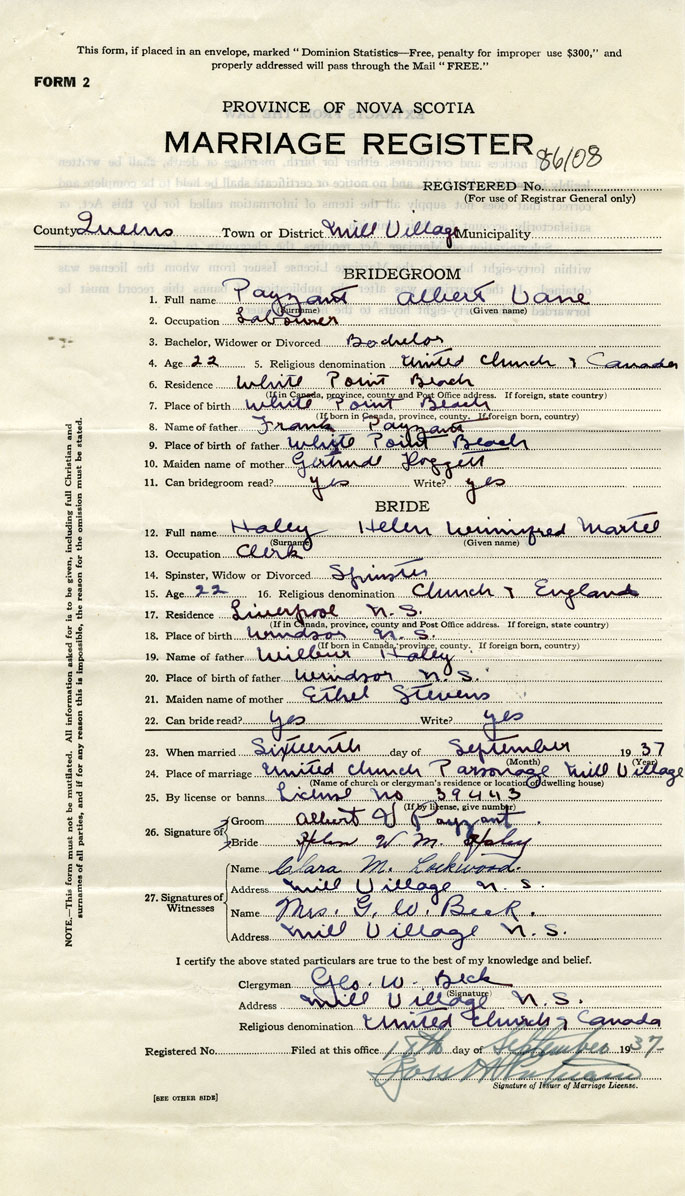 This form, if placed in an envelope, marked "Dominion Statistics—Free, penalty for improper use $300," and
properly addressed will pass through the Mail "FREE."
FORM 2
PROVINCE OF NOVA SCOTIA
MARRIAGE REGISTER 86108
REGISTERED No.
(For use of Registrar General only)
County Queens Town or District Mill Village Municipality
BRIDEGROOM
1. Full name Payzant Albert Vane
(Surname) (Given name)
2. Occupation Labourer
3. Bachelor, Widower or Divorced Bachelor
4. Age 22 5. Religious denomination United Church of Canada
6. Residence White Point Beach
(If in Canada, province, county and Post Office address. If foreign, state country)
7. Place of birth White Point Beach
(If born in Canada, province, county. If foreign born, country)
8. Name of father Frank Payzant
9. Place of birth of father White Point Beach
10. Maiden name of mother Gertrude Hoggett
11. Can bridegroom read? yes Write? yes
BRIDE
12. Full name Haley Helen Winnifred Martel
(Surname) (Given name)
13. Occupation Clerk
14. Spinster, Widow or Divorced Spinster
15. Age 22 16. Religious denomination Church of England
17. Residence Liverpool N.S.
(If in Canada, province, county and Post Office address. If foreign, state country)
18. Place of birth Windsor N.S.
(If born in Canada, province, county. If foreign born, country)
19. Name of father Wilbur Haley
20. Place of birth of father Windsor N.S.
21. Maiden name of mother Ethel Stevens
22. Can bride read? yes Write? yes
23. When married Sixteenth day of September 1937
(Month) (Year)
24. Place of marriage United Church Parsonage Mill Village
(Name of church or clergyman's residence or location of dwelling house)
25. By license or banns License No 39443
(If by license, give number)
26. Signature of Groom Albert V Payzant
Bride Helen W. M. Haley
27. Signatures of Witnesses
Name Clara M. Lockwood.
Address Mill Village N.S.
Name Mrs. G. W. Beck.
Address Mill Village N.S.
I certify the above stated particulars are true to the best of my knowledge and belief.
Clergyman Geo. W. Beck
(Signature)
Address Mill Village N.S.
Religious denomination United Church of Canada
Registered No. Filed at this office 18th day of September 1937
Signature of Issuer of Marriage License.
[SEE OTHER SIDE]
NOTE.—This form must not be mutilated. All information asked for is to be given, including full Christian and
surnames of all parties, and if for any reason this is impossible, the reason for the omission must be stated.